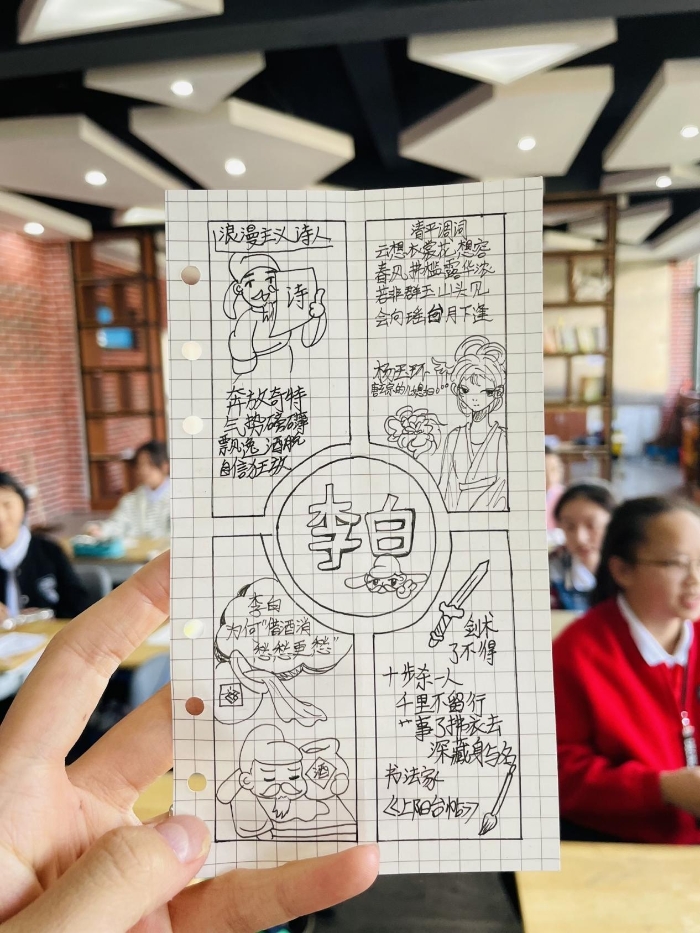 浪漫主义诗人
诗
奔放奇特
气势磅礴
飘逸 洒脱
自信狂放
清平调词
云想衣裳花想容
春风拂槛露华浓
若非群玉山头见
会向瑶台月下逢
杨玉环
李白
李白
为何"借酒消
愁愁更愁"
酒
剑术
了不得
十步杀一人
千里不留行
事了拂衣去
深藏身与名
书法家
《上阳台帖》